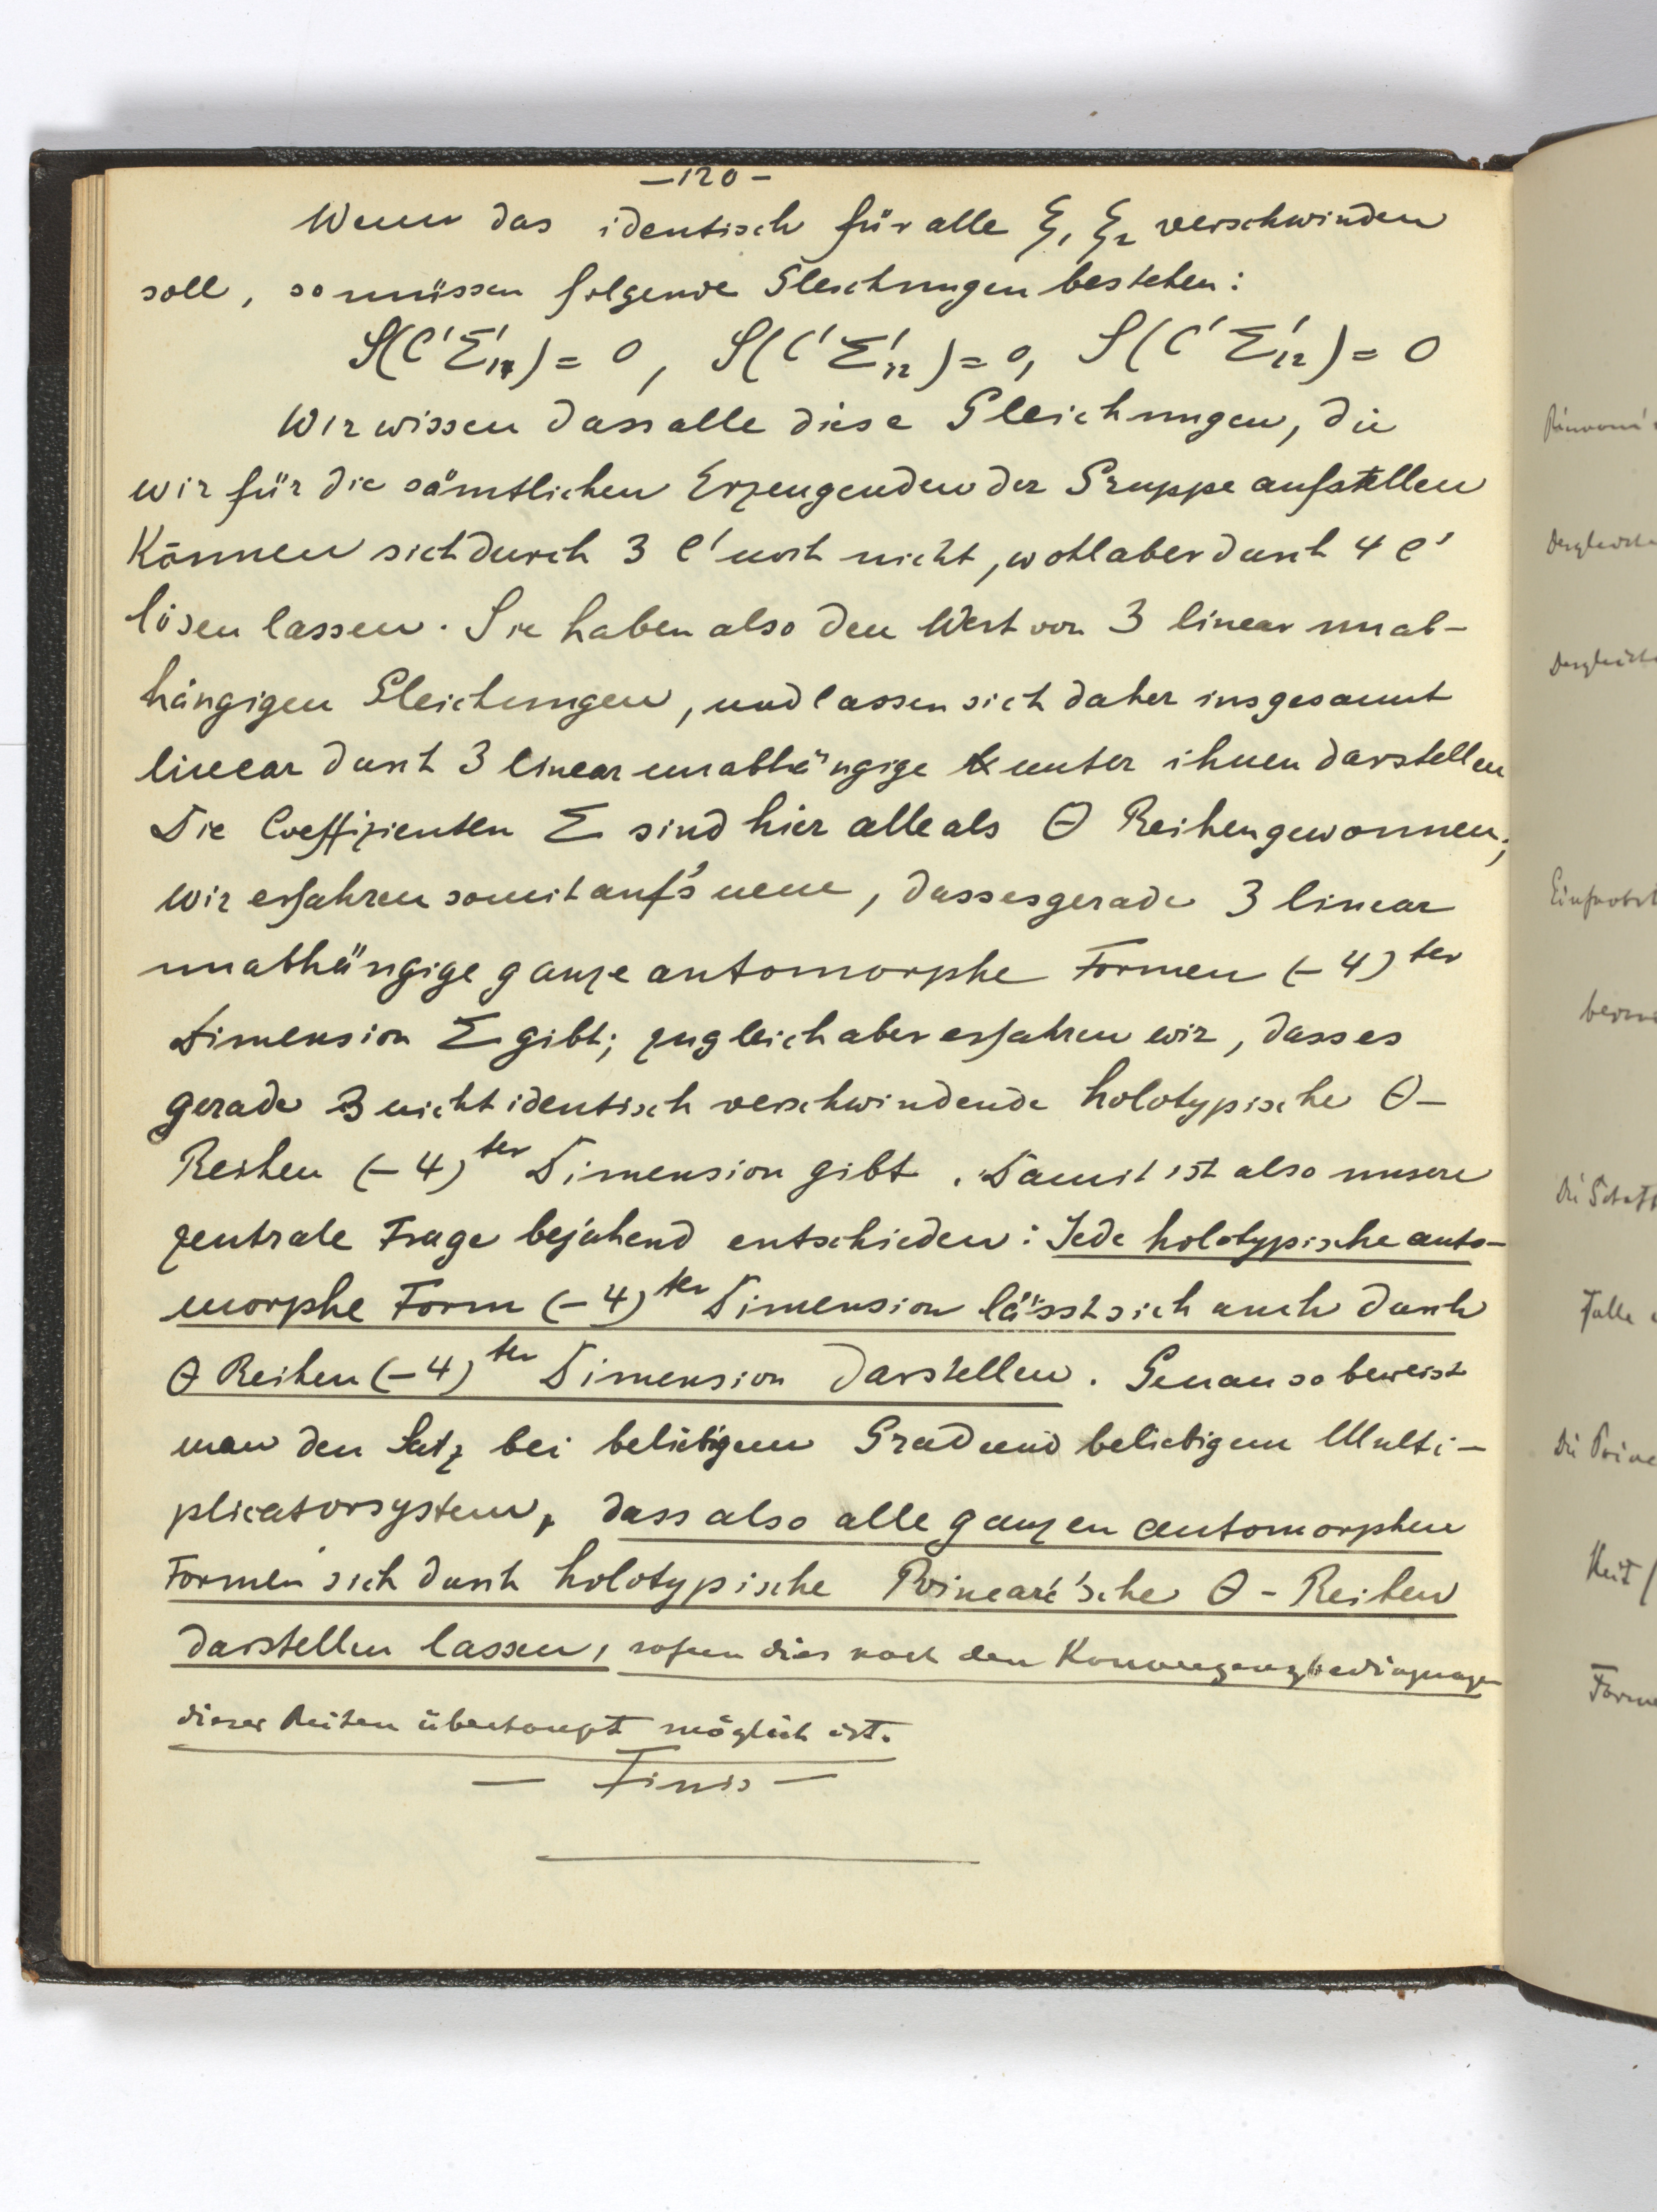 —120—
Wenn das identisch für alle ξ₁ ξ₂ verschwinden
soll, so müssen folgende Gleichungen bestehen:
S(C'Σ'₁₁) = 0, S(C'Σ'₁₂) = 0, S(C'Σ'₁₂) = 0
Wir wissen dass alle diese Gleichungen, die
wir für die sämtlichen Erzeugenden der Gruppe aufstellen
Können sich durch 3 C' noch nicht, wohl aber durch 4 C'
lösen lassen. Sie haben also den Wert von 3 linear unab-
hängigen Gleichungen, und lassen sich daher insgesamt
linear durch 3 linear unabhängige unter ihnen darstellen
Die Coeffizienten Σ sind hier alle als Θ Reihen gewonnen;
wir erfahren somit auf's neue, dass es gerade 3 linear
unabhängige ganze automorphe Formen (-4)ter
Dimension Σ gibt; zugleich aber erfahren wir, dass es
gerade 3 nicht identisch verschwindende holotypische Θ-
Reihen (-4)ter Dimension gibt. Damit ist also unsere
zentrale Frage bejahend entschieden: Jede holotypische auto-
morphe Form (-4)ter Dimension lässt sich auch durch
Θ Reihen (-4)ter Dimension darstellen. Genau so beweist
man den Satz bei beliebigem Grad und beliebigem Multi-
plicatorsystem, dass also alle ganzen automorphen
Formen sich durch holotypische Poincaré'sche Θ-Reihen
darstellen lassen, sofern dies nach den Konvergenzbedingungen
dieser Reihen überhaupt möglich ist.
— Finis —
Dergleiche
Dergleiche
Falle
Die